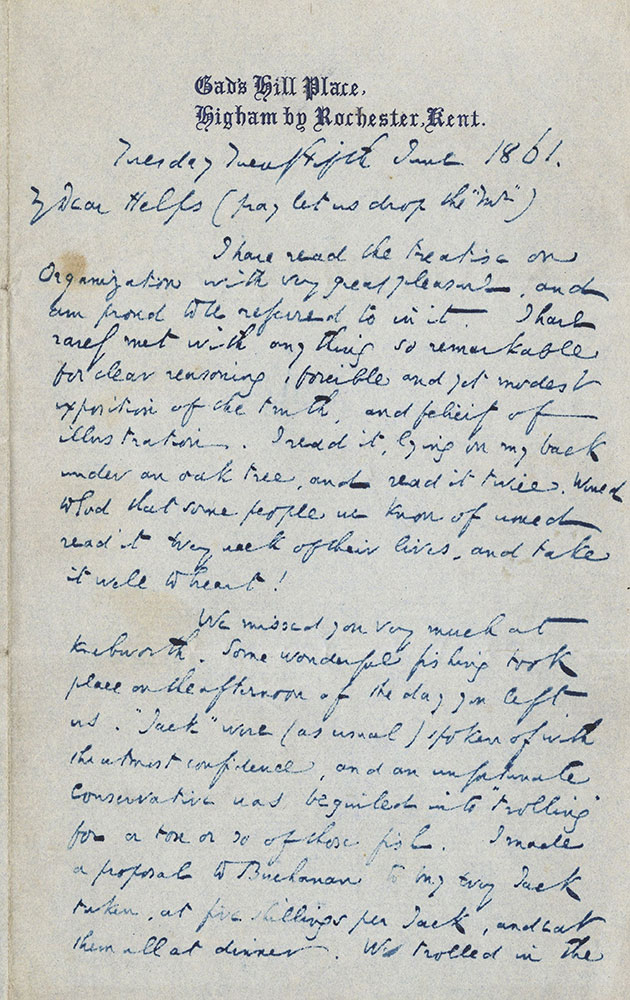 Gad's Hill Place,
Higham by Rochester, Kent.
Tuesday Twenty Fifth June 1861.
My Dear Helps (pray let us drop the "Mr")
I have read the treatise on
Organization with very great pleasure, and
am proud to be referred to in it. I have
rarely met with any thing so remarkable
for clear reasoning, forcible and yet modest
exposition of the truth, and felicity of
illustration. I read it, lying on my back
under an oak tree, and read it twice. Would
to God that some people we know of would
read it every week of their lives, and take
it well to heart!
We missed you very much at
Knebworth. Some wonderful fishing took
place on the afternoon of the day you left
us. "Jack" were (as usual) spoken of with
the utmost confidence, and an unfortunate
Conservative was beguiled into "trolling"
for a ton or so of those fish. I made
a proposal to Buchanan to buy every Jack
taken, at five shillings per Jack, and eat
them all at dinner. We trolled in the